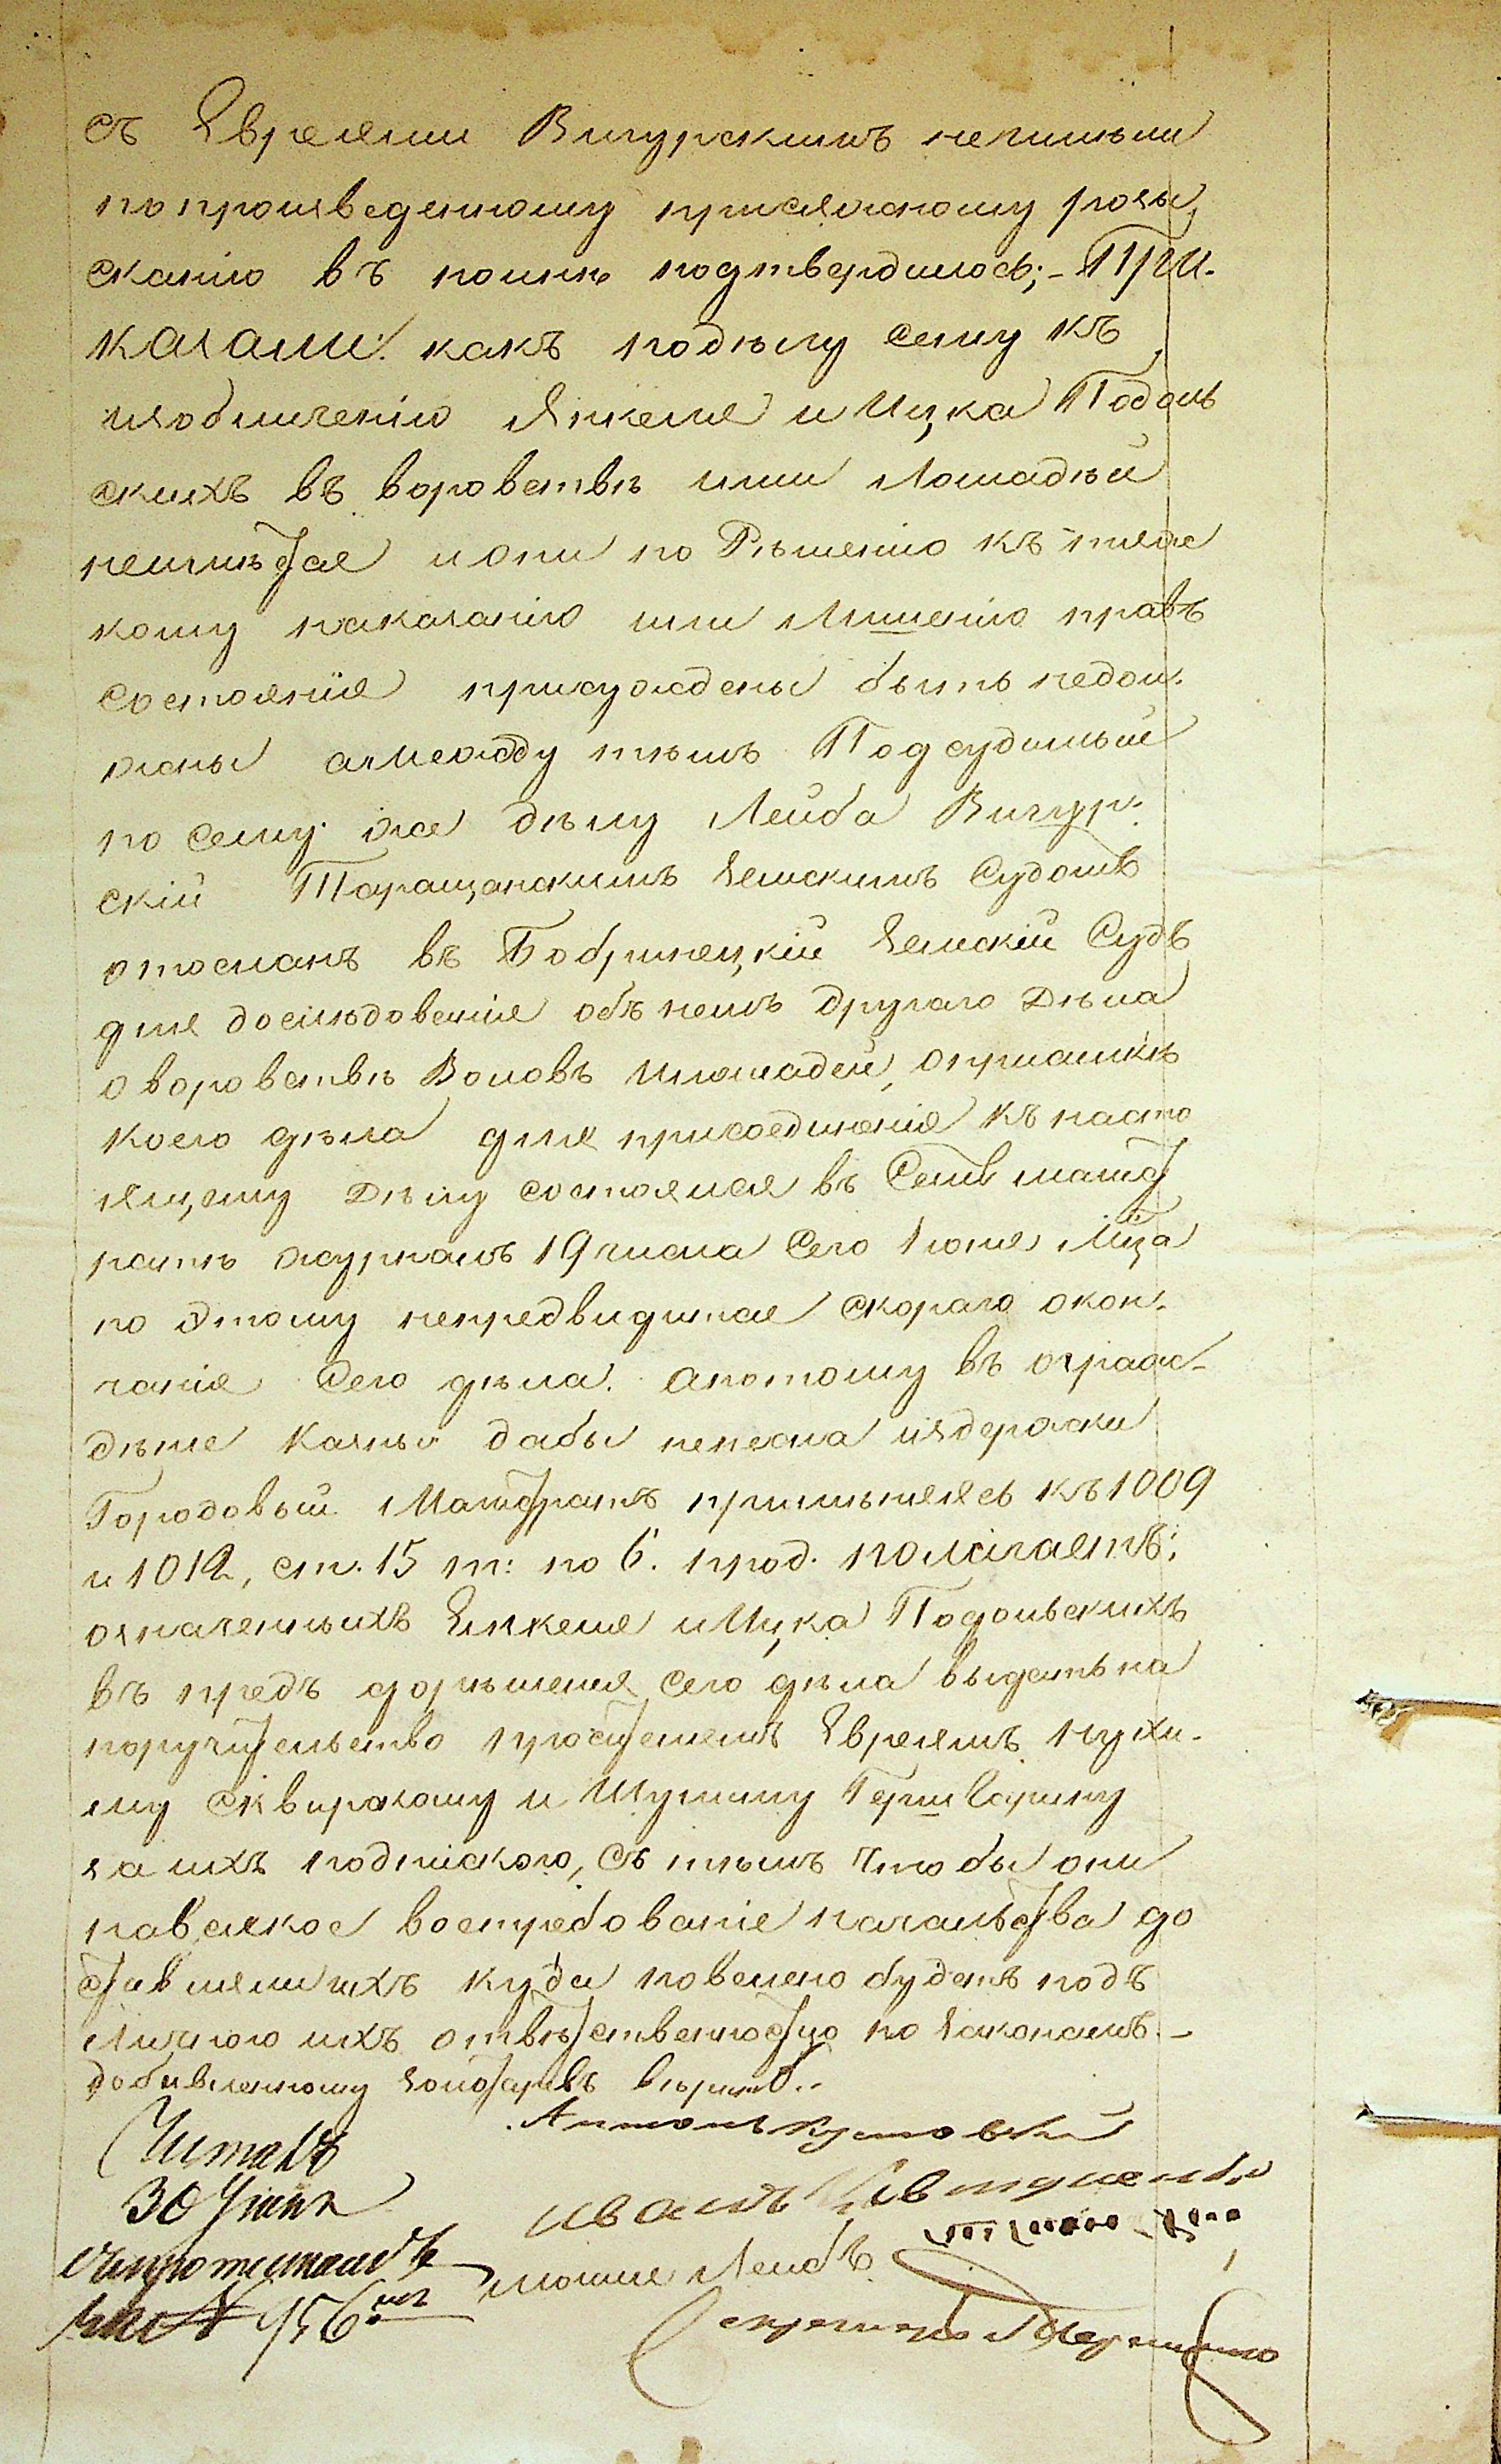 съ Евреями Вигурскимъ нечиныхи
попроизведенному присяжному розы
сканію въ полнѣ подтвердилось; - При-
казали: какъ подѣлу сему къ
изобличенію Янкеля и Ицка Подоль
скихъ въ воровствѣ ими Лошадѣй
неимѣется иони по Рѣшенію къ тяж
кому наказанію или Лишенію правъ
состоянія присуждены быть недол-
жны амежду тѣмъ Подсудимый
по сему же дѣлу Лейба Вигур-
скій Таращанскимъ Земскимъ Судомъ
отосланъ въ Бобринецкій Земскій Судъ
для дослѣдованія объ немъ другаго Дѣла
о воровствѣ Воловъ илошадей, опрісылкѣ
коего дѣла для присоединенія къ насто
ящему Дѣлу состоялся въ Семъ магист
ратѣ журналъ 19 числа Сего Іюня Мца
по Этому непредвидится скораго окон-
чанія Сего дѣла. апотому въ огражд-
дѣніе Казны дабы непесла издержки
Городовый Магистратъ примѣняясь къ 1009
и 1012, ст. 15 т: по 6. прод. полагаетъ:
означенныхъ Янкеля иИцка Подольскихъ
въ предь дорѣшенія сего дѣла выдать на
поручительство простителямъ Евреямъ Нухи-
му Сквирскому и Шулиму Гершварину
за ихъ подпискою, съ тѣмъ чтобы они
навсякое востребованіе начальства до
ставляли ихъ куда повелено будетъ подъ
Личною ихъ отвѣтственностію по Законамъ. -
Антонъ
иванъ
мошко Лейбъ
Секретарь
Читалъ
30 Іюня
№ 956